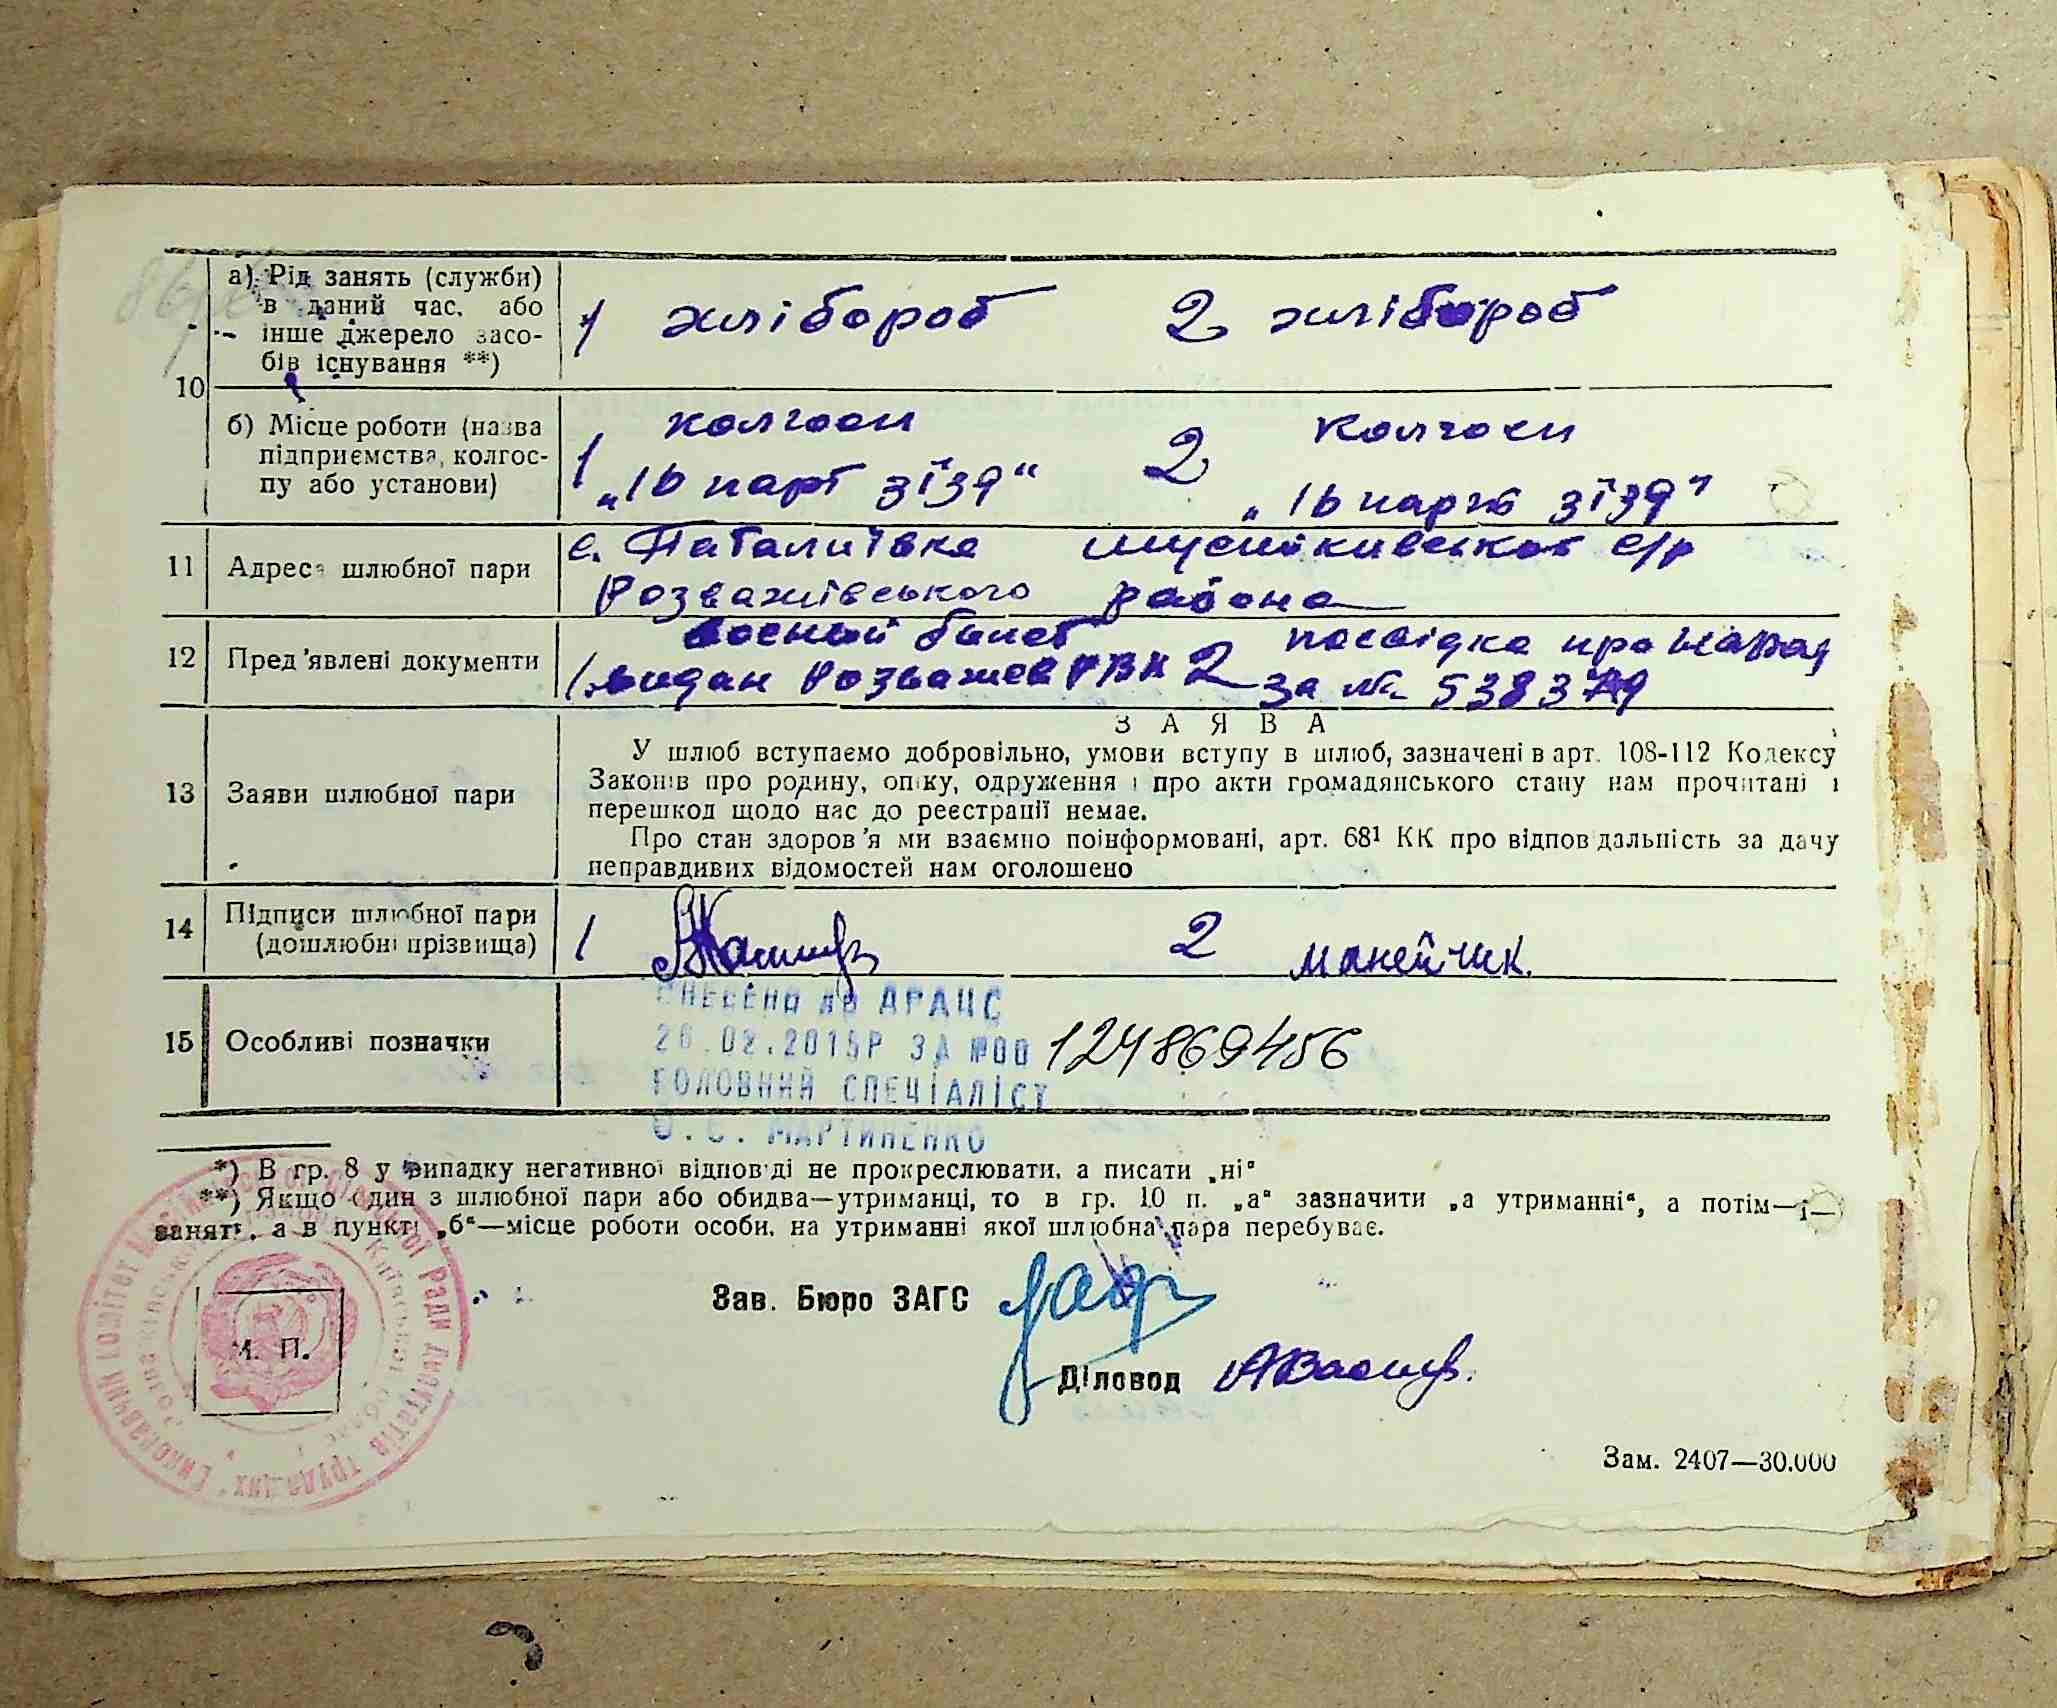 10
а) Рід занять (служби)
в даний час, або
інше джерело засо-
бів існування **)
1 хлібороб 2 хлібороб
б) Місце роботи (назва
підприємства, колгос-
пу або установи)
1 колгосп 2 колгосп
„16 парт зїзд“ „16 парт зїзд"
11 Адреса шлюбної пари
с. Наталиївка с/р
Розважівського района
12 Пред'явлені документи
1. военый билет 2 посвідка про нарад
видан Розважев РВК за № 538379
З А Я В А
13 Заяви шлюбної пари
У шлюб вступаємо добровільно, умови вступу в шлюб, зазначені в арт. 108-112 Кодексу
Законів про родину, опіку, одруження і про акти громадянського стану нам прочитані і
перешкод щодо нас до реєстрації немає.
Про стан здоров'я ми взаємно поінформовані, арт. 68¹ КК про відповідальність за дачу
неправдивих відомостей нам оголошено
14 Підписи шлюбної пари
(дошлюбні прізвища)
1 2 Манейчик.
15 Особливі позначки
ВНЕСЕНО ДО ДРАЦС
26.02.2015Р ЗА №00 124869456
ГОЛОВНИЙ СПЕЦІАЛІСТ
О.С. МАРТИНЕНКО
*) В гр. 8 у випадку негативної відповіді не прокреслювати, а писати „ні“
**) Якщо один з шлюбної пари або обидва—утриманці, то в гр. 10 п. „а“ зазначити „а утриманні“, а потім—і—
занять, а в пункті „б“—місце роботи особи, на утриманні якої шлюбна пара перебуває.
Зав. Бюро ЗАГС
М. П.
Діловод
Виконавчий комітет Ради Депутатів Трудящих
Київської області
Зам. 2407—30.000